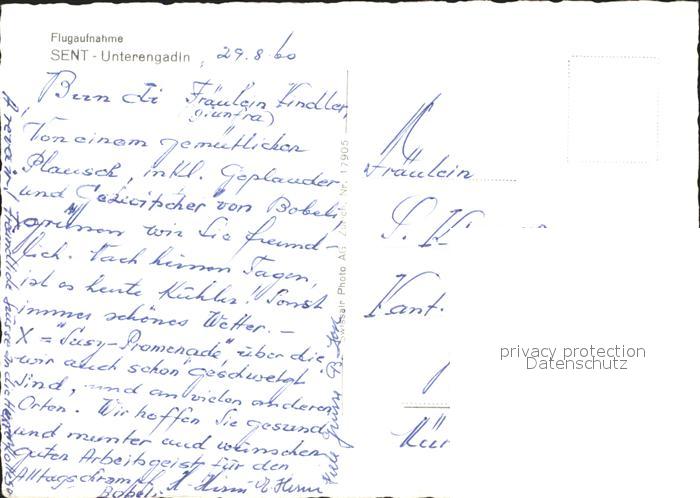 Flugaufnahme
SENT - Unterengadin, 29.8.60
Bun di Fräulein Kindler,
(Giunfra)
Von einem gemütlichen
Plausch, inkl. Geplauder
und Gezwitscher von Bobeli,
grüssen wir Sie freund-
lich. Nach heissen Tagen,
ist es heute kühler! Sonst
immer schönes Wetter. –
X = "Susy-Promenade", über die
wir auch schon geschwebt
sind, und an vielen anderen
Orten. Wir hoffen Sie gesund
und munter und wünschen
guten Arbeitsgeist für den
Alltagschrampf.
Bobeli
Viele Grüsse
Swissair Photo AG Zürich Nr. 17905
Fräulein
S. K
Kant.
privacy protection
Datenschutz